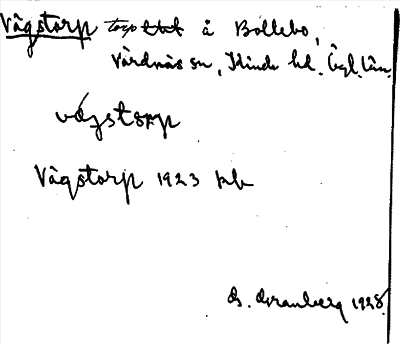 Vågstorp torp å Bollebo,
Vårdnäs sn, Kinda hd. Ögl. län.
vågstorp
Vågstorp 1923 kb
G. Granberg 1928.